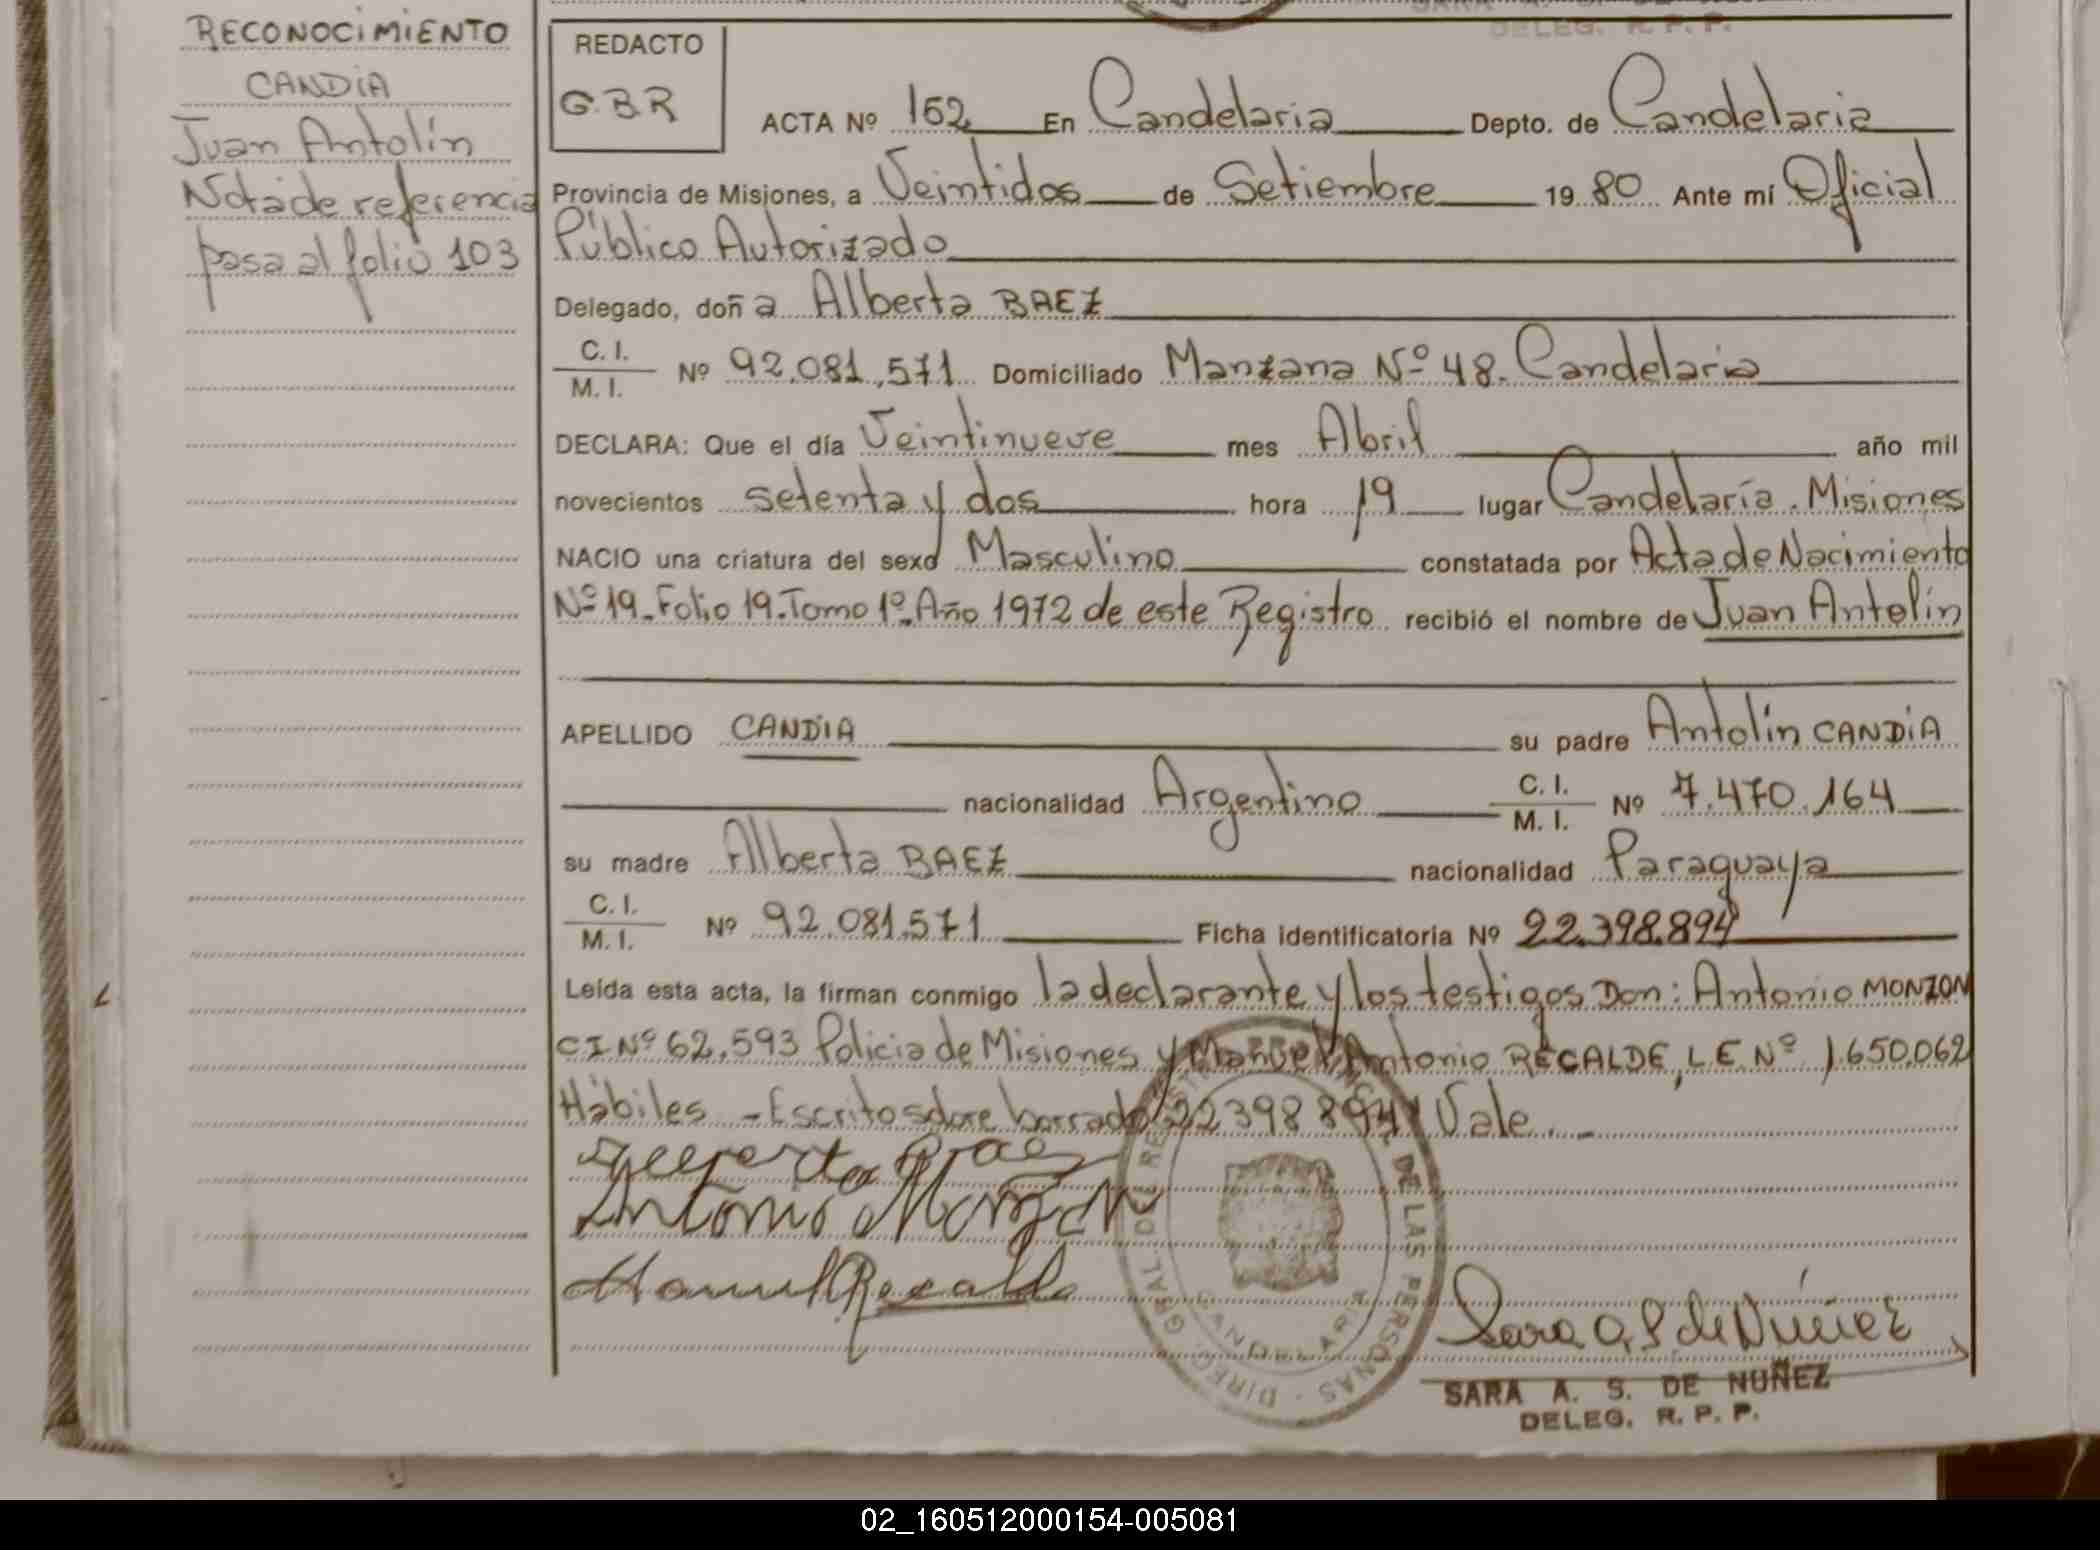 RECONOCIMIENTO
CANDIA
Juan Antolín
Nota de referencia
pasa al folio 103
SARA A. S. DE
DELEG. R. P. P.
REDACTO
G.B.R
ACTA Nº 152 En Candelaria Depto. de Candelaria
Provincia de Misiones, a Veintidos de Setiembre 19 80 Ante mí Oficial
Público Autorizado
Delegado, doña Alberta BAEZ
C. I. / M. I. Nº 92.081.571 Domiciliado Manzana Nº 48. Candelaria
DECLARA: Que el día Veintinueve mes Abril año mil
novecientos setenta y dos hora 19 lugar Candelaria. Misiones
NACIO una criatura del sexo Masculino constatada por Acta de Nacimiento
Nº 19. Folio 19. Tomo 1º. Año 1972 de este Registro recibió el nombre de Juan Antolín
APELLIDO CANDIA su padre Antolín CANDIA
nacionalidad Argentino C. I. / M. I. Nº 7.470.164
su madre Alberta BAEZ nacionalidad Paraguaya
C. I. / M. I. Nº 92.081.571 Ficha identificatoria Nº 22.398.894
Leída esta acta, la firman conmigo la declarante y los testigos Don: Antonio MONZON
CI Nº 62.593 Policia de Misiones y Manuel Antonio RECALDE, L.E. Nº 1.650.062
Hábiles - Escrito sobre borrado 22398894 Vale. -
Alberta Baez
Antonio Monzon
Manuel Recalde
DIREC. GRAL. DEL REGISTRO PROVINC. DE LAS PERSONAS
CANDELARIA
Sara A. S de Núñez
SARA A. S. DE NUÑEZ
DELEG. R. P. P.
02_160512000154-005081